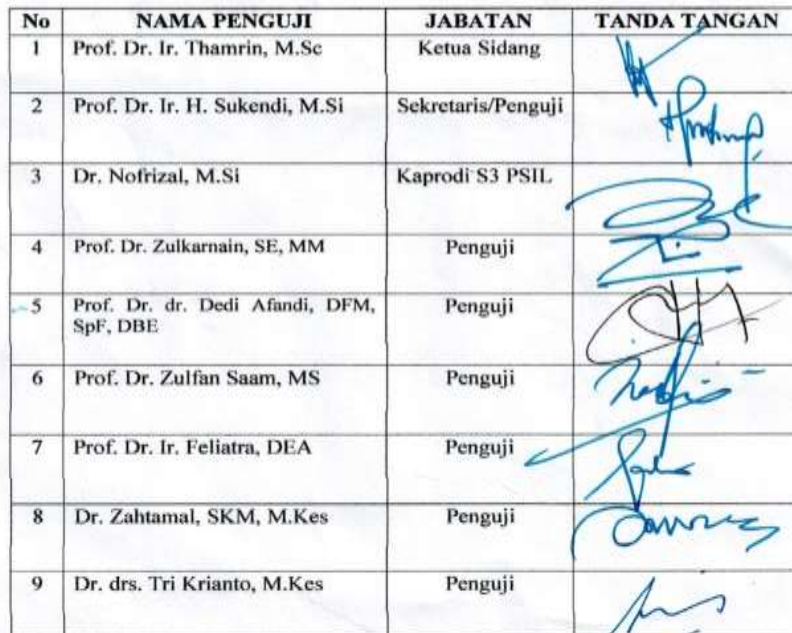 No NAMA PENGUJI JABATAN TANDA TANGAN
1 Prof. Dr. Ir. Thamrin, M.Sc Ketua Sidang
2 Prof. Dr. Ir. H. Sukendi, M.Si Sekretaris/Penguji
3 Dr. Nofrizal, M.Si Kaprodi S3 PSIL
4 Prof. Dr. Zulkarnain, SE, MM Penguji
5 Prof. Dr. dr. Dedi Afandi, DFM, Penguji
SpF, DBE
6 Prof. Dr. Zulfan Saam, MS Penguji
7 Prof. Dr. Ir. Feliatra, DEA Penguji
8 Dr. Zahtamal, SKM, M.Kes Penguji
9 Dr. drs. Tri Krianto, M.Kes Penguji